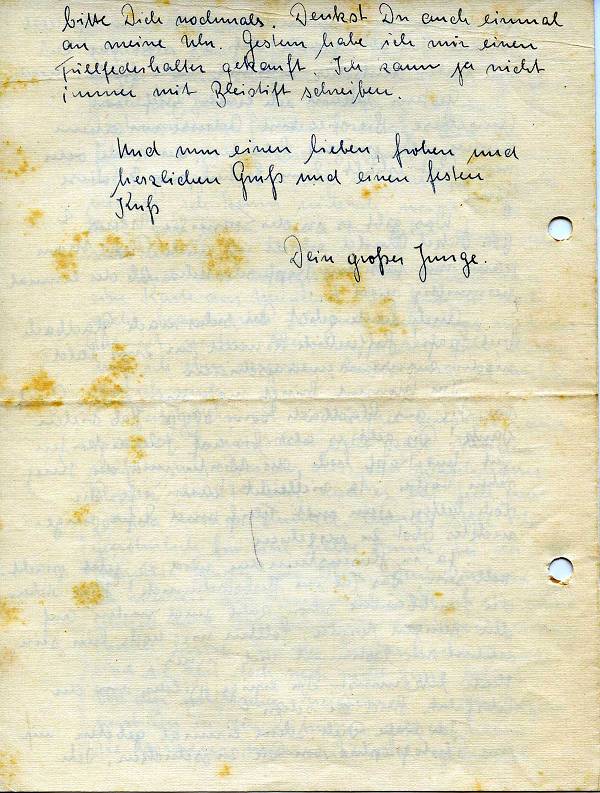 bitte Dich nochmals. Denkst Du auch einmal
an meine Uhr. Gestern habe ich mir einen
Füllfederhalter gekauft. Ich kann ja nicht
immer mit Bleistift schreiben.
Und nun einen lieben, frohen und
herzlichen Gruß und einen festen
Kuß
Dein großer Junge.